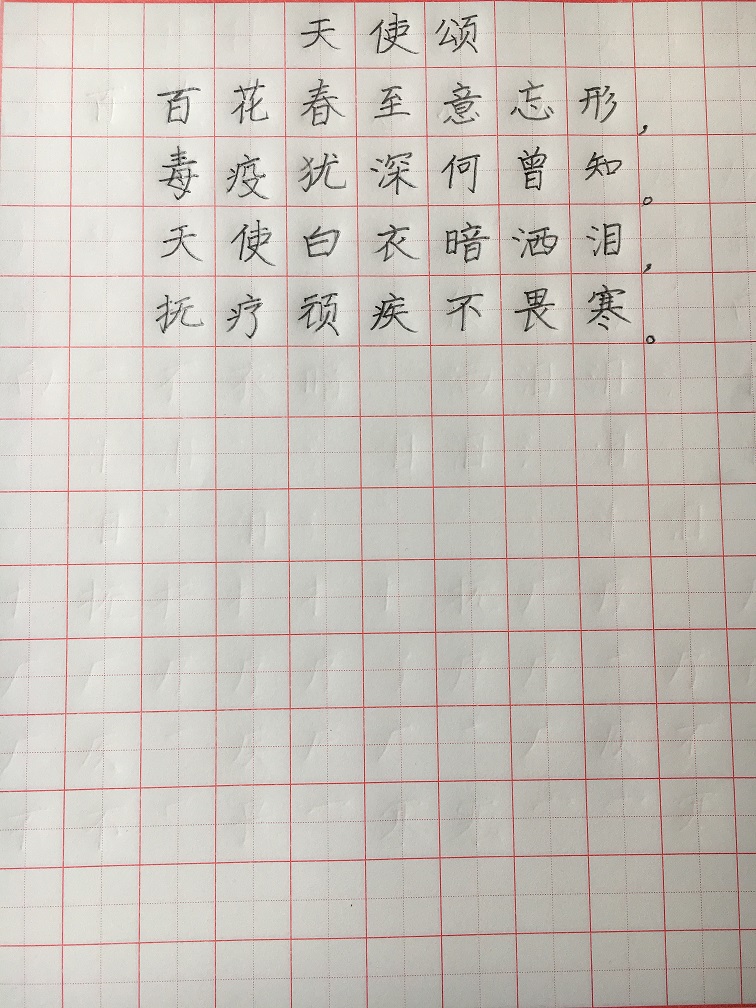 天使颂
百花春至意忘形，
毒疫犹深何曾知。
天使白衣暗洒泪，
抚疗顽疾不畏寒。